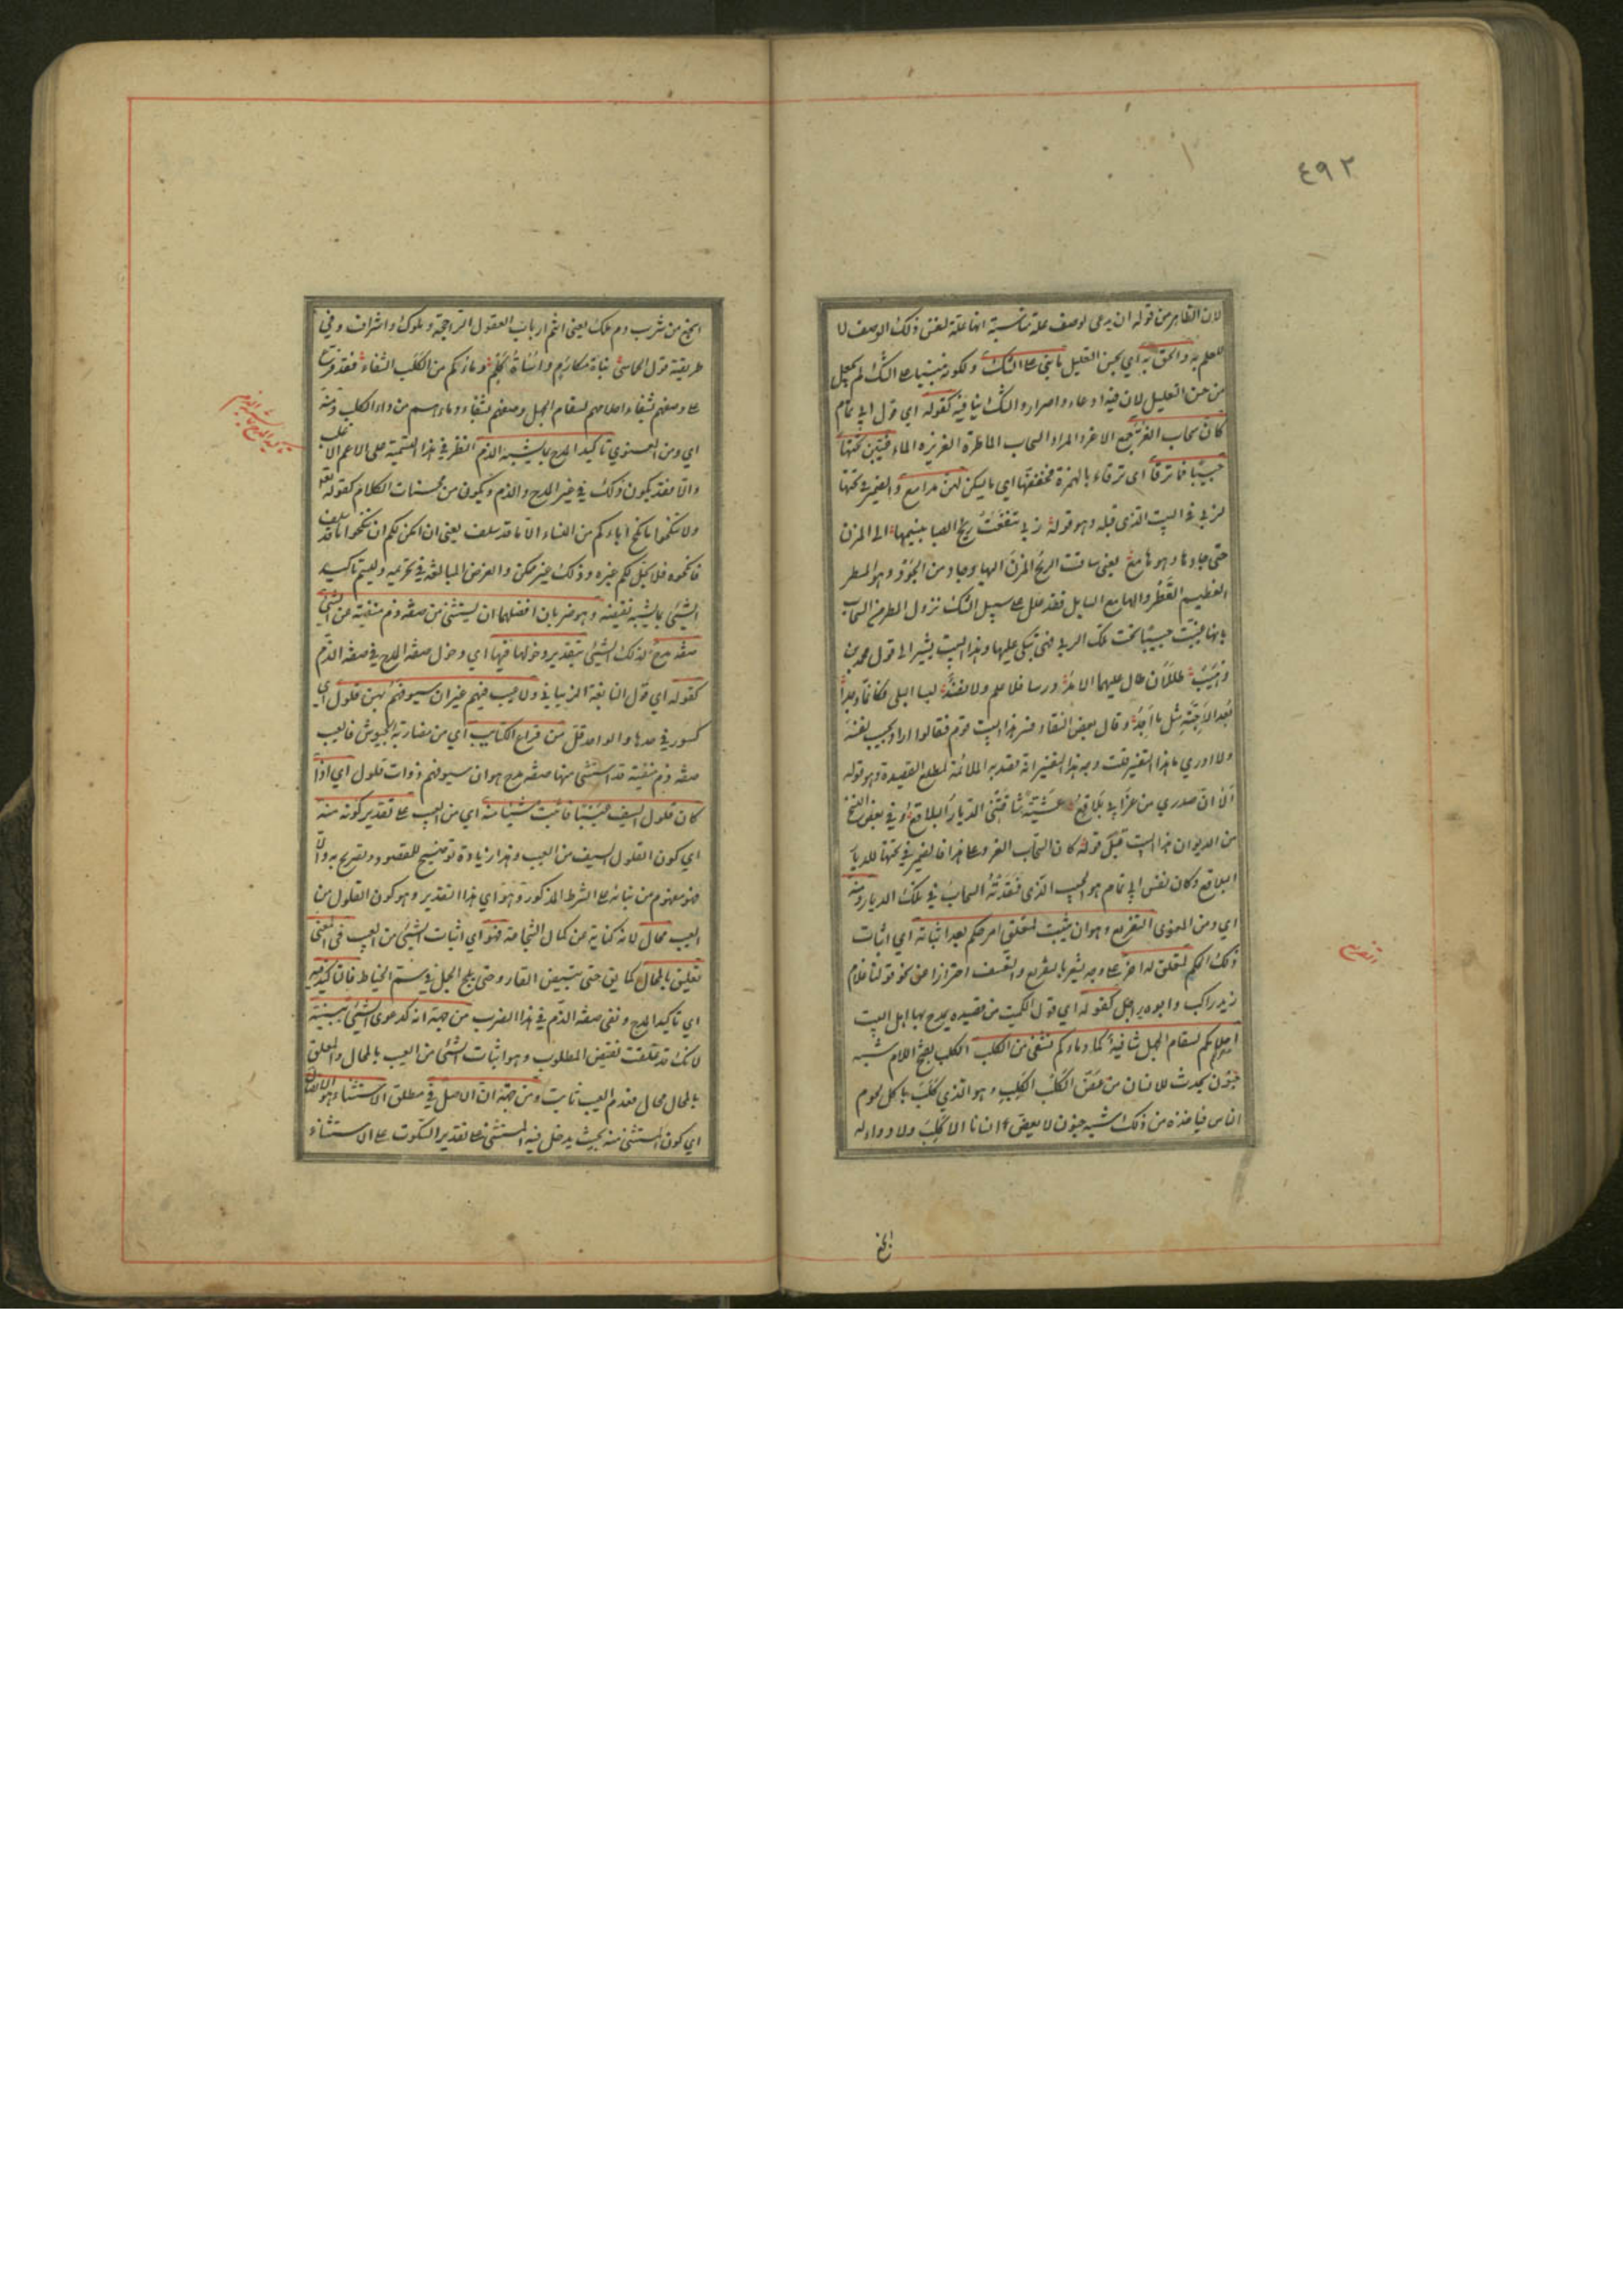 ٤٩٢
لان الظاهر من قوله ان يدعى لوصف علة مناسبة انها علة لنفس ذلك الوصف لا
للعلم به والحق به اي بحسن التعليل ما بنى على الشك ولكونه مبنيا على الشك لم يجعل
من حسن التعليل لان فيه ادعاء واصرارا والشك ينافيه كقوله اي قول ابي تمام
كان سحاب الغر جمع الاغر والمراد السحاب الماطرة الغزيرة الماء غيبن تحتها
حبيبا فما ترقا اي ترقاء بالهمزة مخففتها اي ما يسكن لهن مدامع والضمير في تحتها
لربى في البيت الذي قبله وهو قوله ربى شفعت ريح الصبا بنسيمها الى المزن
حتى جادها وهو هامع يعني ساقت الريح المزن اليها وجاد من الجود وهو المطر
العظيم القطر والهامع السايل فقد علل على سبيل الشك نزول المطر من السحاب
بانها غيبت حبيبا تحت تلك الربى فهي تبكي عليها وهذا البيت يشير الى قول محمد بن
وهيب طللان طال عليهما الامد درسا فلا علم ولا نضد لبسا البلى فكانما وجدا
بعد الاحبة مثل ما اجد وقال بعض النقاد فسر هذا البيت قوم فقالوا اراد بحبيب نفسه
ولا ادري ما هذا التفسير قلت وجه هذا التفسير انه لقصد به الملائمة لمطلع القصيدة وهو قوله
الا ان صدري من عزائي بلاقع عشية شاقتني الديار البلاقع وفي بعض النسخ
من الديوان هذا البيت قبل قوله كان السحاب الغر وعلى هذا فالضمير في تحتها للديار
البلاقع وكان نفس ابي تمام هو الحبيب الذي فقدته السحاب في تلك الديار ومنه
اي ومن المعنوي التفريع وهو ان يثبت لمتعلق امر حكم بعد اثباته اي اثبات
ذلك الحكم لمتعلق له اخر على وجه يشعر بالتفريع والتعقيب احترازا عن نحو قولنا غلام
زيد راكب وابوه راجل كقوله اي قول الكميت من قصيدة يمدح بها اهل البيت
احلامكم لسقام الجهل شافية كما دماءكم تشفي من الكلب الكلب بفتح اللام شبه
جنون يحدث للانسان من عض الكلب الكلب وهو الذي كلب باكل لحوم
الناس فياخذه من ذلك شبه جنون لا يعض انسانا الا كلب ولا دواء له
التفريع
انجع
انجع من شرب دم ملك يعني انتم ارباب العقول الراجحة وملوك واشراف وفي
طريقته قول الحماسي بناة مكارم واساة كلم دماؤكم من الكلب الشفاء فقد فرع
على وصفهم بشفاء احلامهم لسقام الجهل وصفهم بشفاء دمائهم من داء الكلب ومنه
اي ومن المعنوي تاكيد المدح بما يشبه الذم النظر في هذا التسمية على الاعم الاغلب
والا فقد يكون ذلك في غير المدح والذم ويكون من محسنات الكلام كقوله تعالى
ولا تنكحوا ما نكح اباءكم من النساء الا ما قد سلف يعني ان امكن لكم ان تنكحوا ما قد سلف
فانكحوه فلا يحل لكم غيره وذلك غير ممكن والغرض المبالغة في تحريمه وليسم تاكيد
الشيء بما يشبه نقيضه وهو ضربان افضلهما ان يستثنى من صفة ذم منفية عن الشيء
صفة مدح لذلك الشيء بتقدير دخولها فيها اي دخول صفة المدح في صفة الذم
كقوله اي قول النابغة الذبياني ولا عيب فيهم غير ان سيوفهم بهن فلول اي
كسور في حدها والواحد فل من قراع الكتايب اي من مضاربة الجيوش فالعيب
صفة ذم منفية قد استثنى منها صفة مدح هو ان سيوفهم ذوات فلول اي اذا
كان فلول السيف عيبا فاثبت شيئا منه اي من العيب على تقدير كونه منه
اي كون الفلول السيف من العيب وهذا زيادة توضيح للمقصود وتصريح به والا
فهو مفهوم من بنائه على الشرط المذكور وهو اي هذا التقدير وهو كون الفلول من
العيب محال لانه كناية عن كمال الشجاعة فهو اي اثبات الشيء من العيب في المعنى
تعليق بالمحال كما يق حتى يبيض القار وحتى يلج الجمل في سم الخياط فالتاكيد فيه
اي تاكيد المدح ونفي صفة الذم في هذا الضرب من جهة انه كدعوى الشيء ببينة
لانك قد علقت نقيض المطلوب وهو اثبات الشيء من العيب بالمحال والمعلق
بالمحال محال فعدم العيب ثابت ومن جهة ان الاصل في مطلق الاستثناء هو الاتصال
اي كون المستثنى منه بحيث يدخل فيه المستثنى على تقدير السكوت على الاستثناء
تاكيد المدح بما يشبه الذم